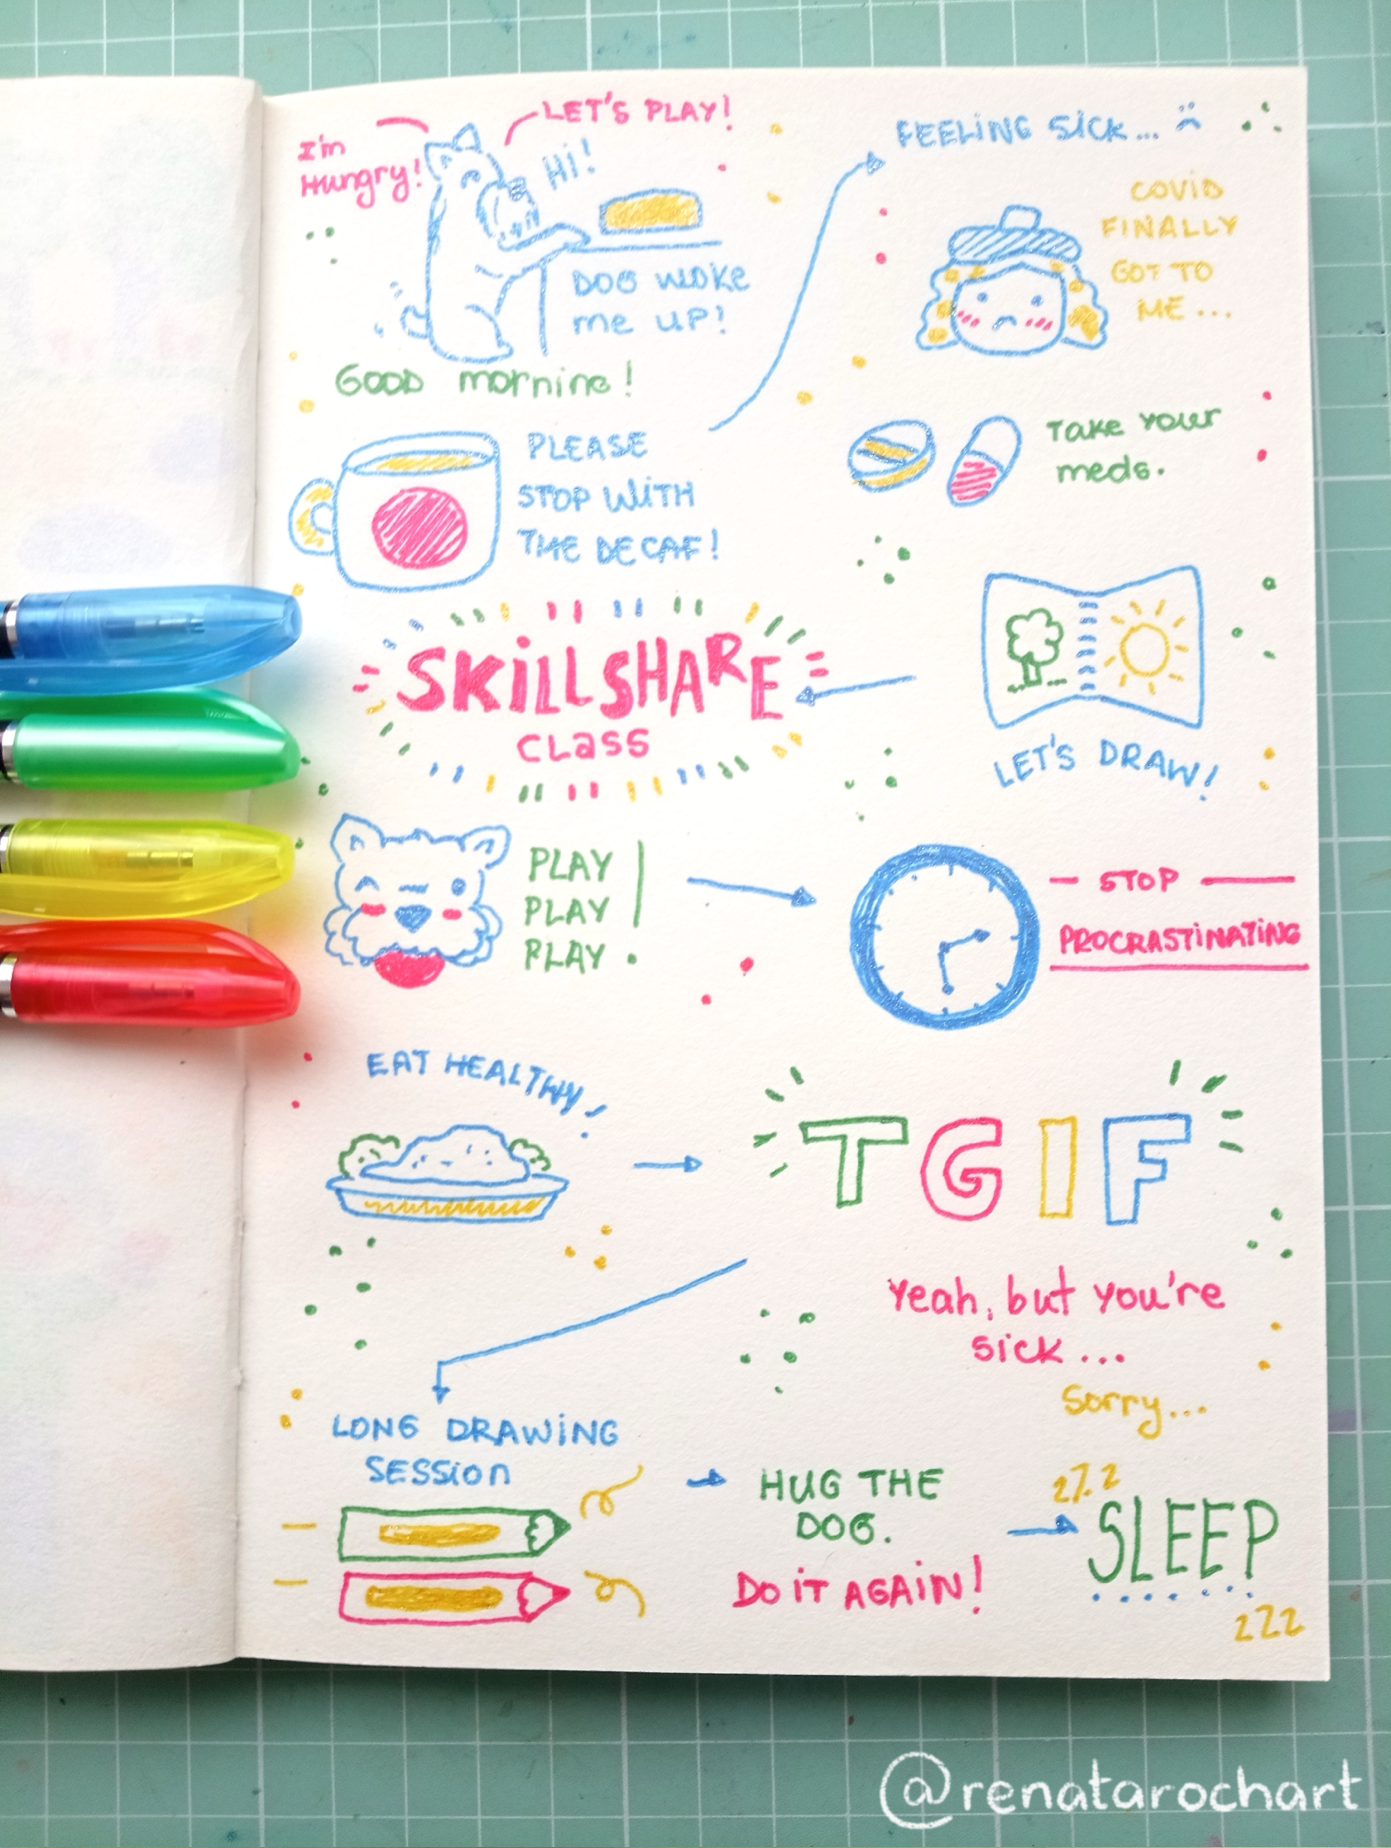 I'm
Hungry!
LET'S PLAY!
Hi!
DOG WOKE
me UP!
GOOD morning!
PLEASE
STOP WITH
THE DECAF!
FEELING SICK...
COVID
FINALLY
GOT TO
ME...
Take your
meds.
LET'S DRAW!
SKILLSHARE
CLASS
PLAY
PLAY
PLAY
STOP
PROCRASTINATING
EAT HEALTHY!
TGIF
Yeah, but you're
sick...
Sorry...
LONG DRAWING
SESSION
HUG THE
DOG.
DO IT AGAIN!
zzz
SLEEP
zzz
@renatarochart